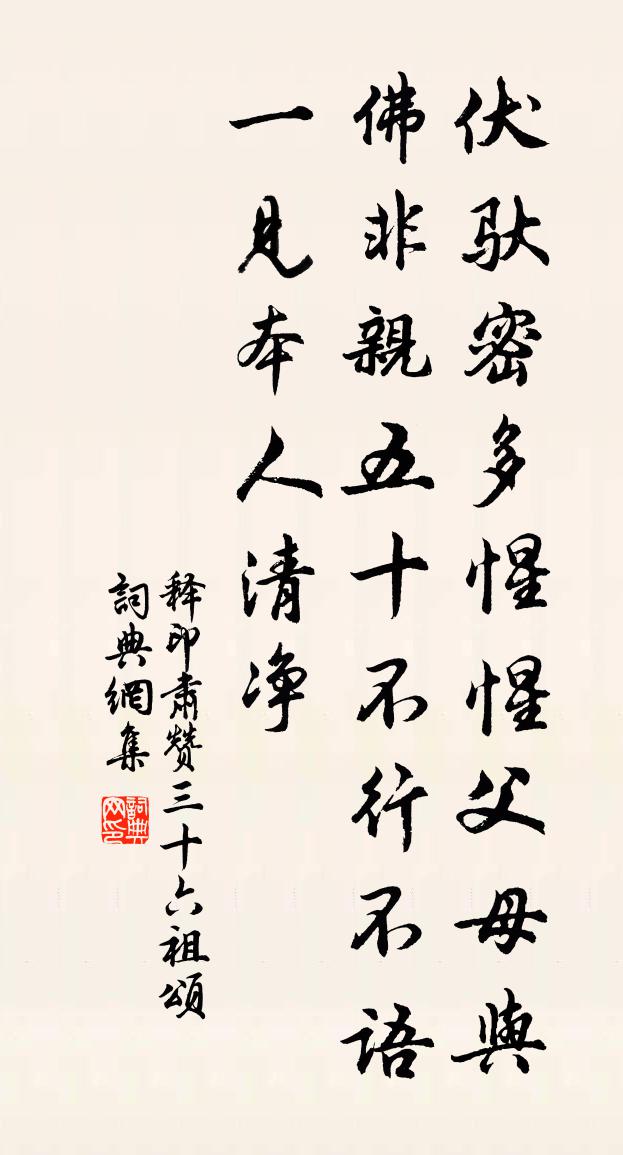 伏驮密多惺惺父母與
佛非親五十不行不語
一見本人清净
释印肃赞三十六祖頌
詞典網集
詞典网印